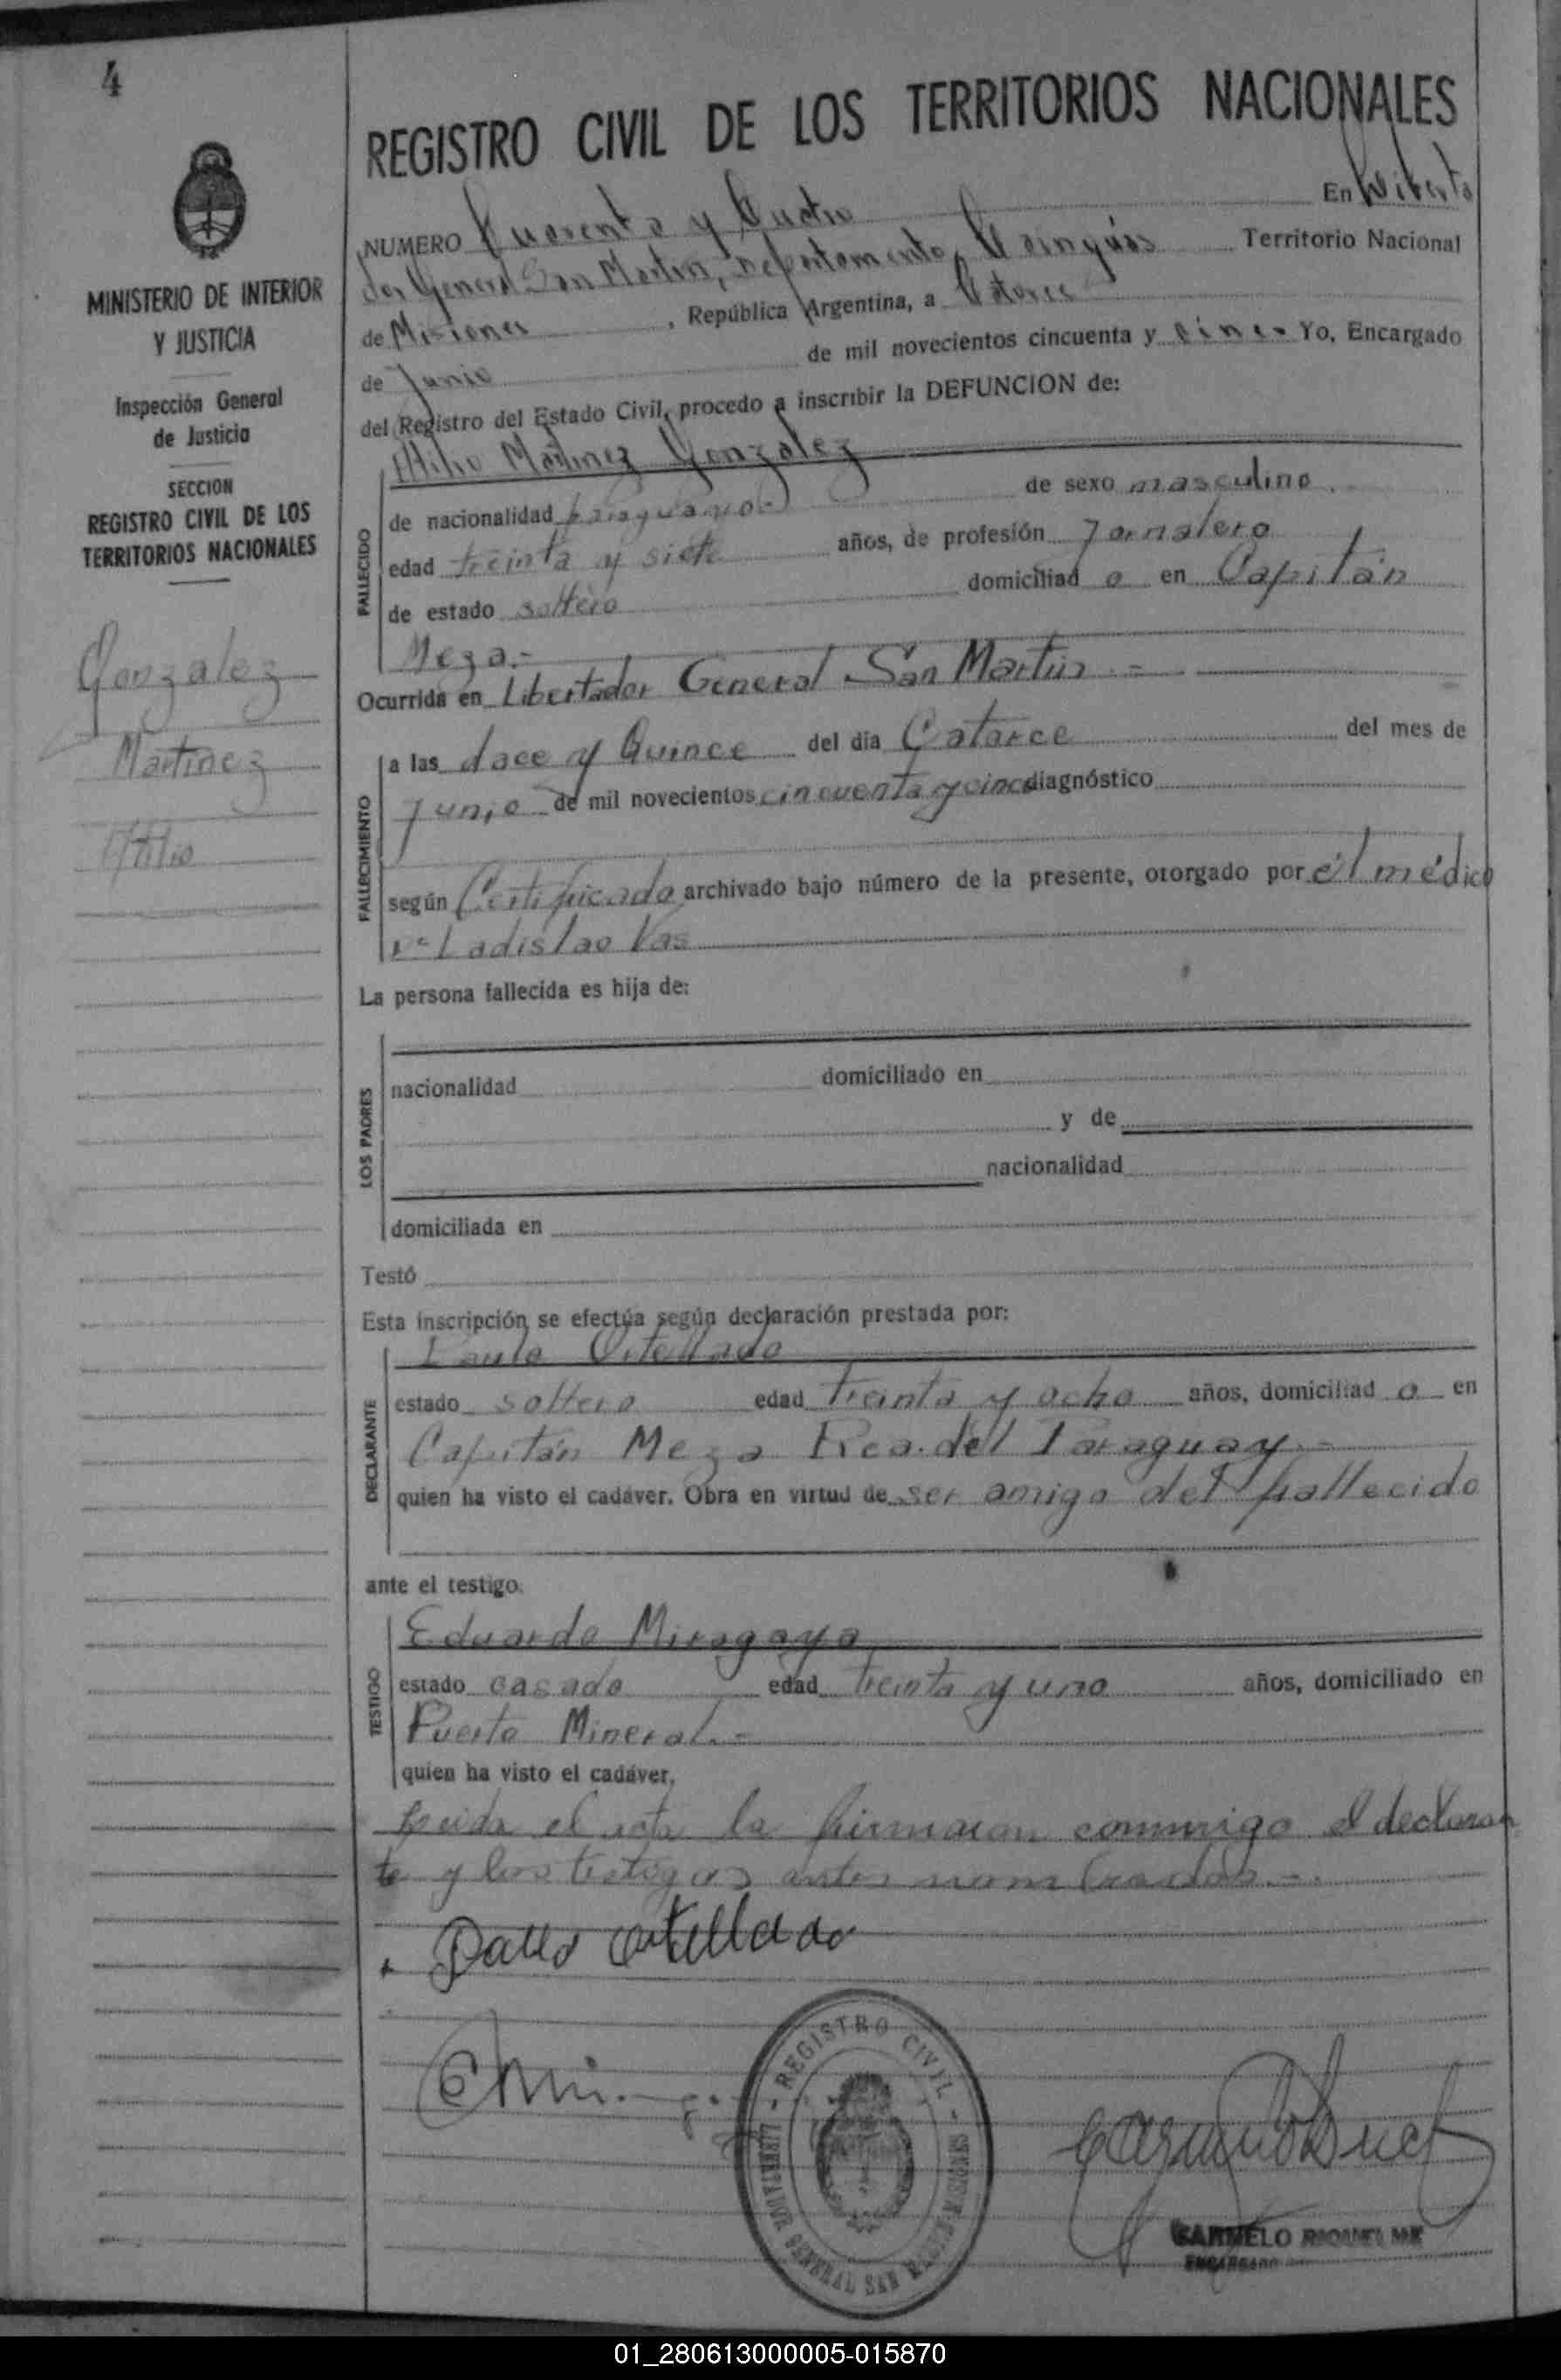 4
REGISTRO CIVIL DE LOS TERRITORIOS NACIONALES
MINISTERIO DE INTERIOR
Y JUSTICIA
Inspección General
de Justicia
SECCION
REGISTRO CIVIL DE LOS
TERRITORIOS NACIONALES
Gonzalez
Martinez
Atilio
NUMERO Cuarenta y Cuatro En Liberta
dor General San Martin, Departamento Cainguás Territorio Nacional
de Misiones, República Argentina, a Catorce
de Junio de mil novecientos cincuenta y cinco Yo, Encargado
del Registro del Estado Civil, procedo a inscribir la DEFUNCION de:
FALLECIDO
Atilio Martinez Gonzalez
de nacionalidad paraguayo.- de sexo masculino.
edad treinta y siete años, de profesión Jornalero
de estado soltero domiciliad o en Capitán
Meza.-
Ocurrida en Libertador General San Martin.-
FALLECIMIENTO
a las doce y Quince del día Catorce del mes de
Junio de mil novecientos cincuenta y cinco diagnóstico
según Certificado archivado bajo número de la presente, otorgado por el médico
Dr Ladislao Vas
La persona fallecida es hija de:
LOS PADRES
nacionalidad domiciliado en
y de
nacionalidad
domiciliada en
Testó
Esta inscripción se efectúa según declaración prestada por:
DECLARANTE
Paulo Ortellado
estado soltero edad treinta y ocho años, domiciliad o en
Capitán Meza Rca. del Paraguay.-
quien ha visto el cadáver. Obra en virtud de ser amigo del fallecido
ante el testigo.
TESTIGO
Eduardo Miragaya
estado casado edad treinta y uno años, domiciliado en
Puerto Mineral.-
quien ha visto el cadáver.
Leida el acta la firmaron conmigo el declaran
te y los testigos antes nombrados.-
Paulo Ortellado
REGISTRO CIVIL
LIBERTADOR GENERAL SAN MARTIN - MISIONES
CARMELO RIQUELME
ENCARGADO
01_280613000005-015870